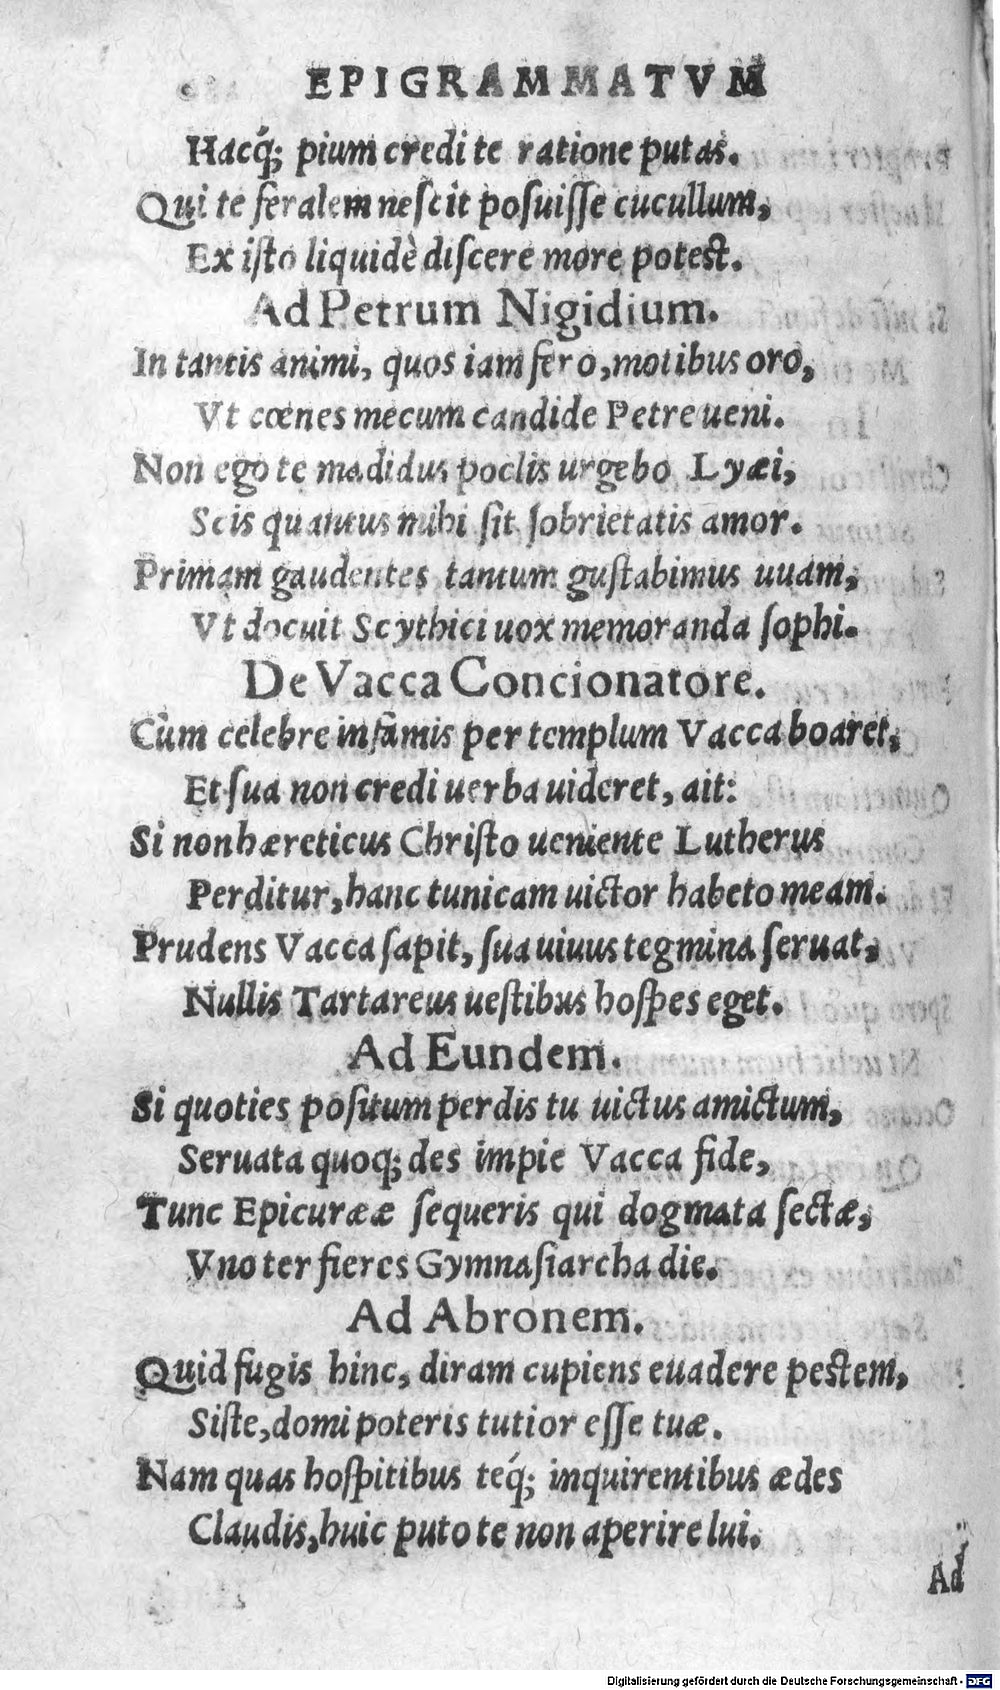 EPIGRAMMATVM
Hacq́; pium credi te ratione putas.
Qui te feralem nescit posuisse cucullum,
Ex isto liquidè discere more potest.
Ad Petrum Nigidium.
In tantis animi, quos iam fero, motibus oro,
Vt cœnes mecum candide Petre ueni.
Non ego te madidus poclis urgebo Lyæi,
Scis quantus mihi sit sobrietatis amor.
Primam gaudentes tantum gustabimus uuam,
Vt docuit Scythici uox memoranda sophi.
De Vacca Concionatore.
Cùm celebre infâmis per templum Vacca boaret,
Et sua non credi uerba uideret, ait:
Si non hæreticus Christo ueniente Lutherus
Perditur, hanc tunicam uictor habeto meam.
Prudens Vacca sapit, sua uiuus tegmina seruat,
Nullis Tartareus uestibus hospes eget.
Ad Eundem.
Si quoties positum perdis tu uictus amictum,
Seruata quoq; des impie Vacca fide,
Tunc Epicurææ sequeris qui dogmata sectæ,
Vno ter fieres Gymnasiarcha die.
Ad Abronem.
Quid fugis hinc, diram cupiens euadere pestem,
Siste, domi poteris tutior esse tuæ.
Nam quas hospitibus teq́; inquirentibus ædes
Claudis, huic puto te non aperire lui.
Ad
Digitalisierung gefördert durch die Deutsche Forschungsgemeinschaft - DFG